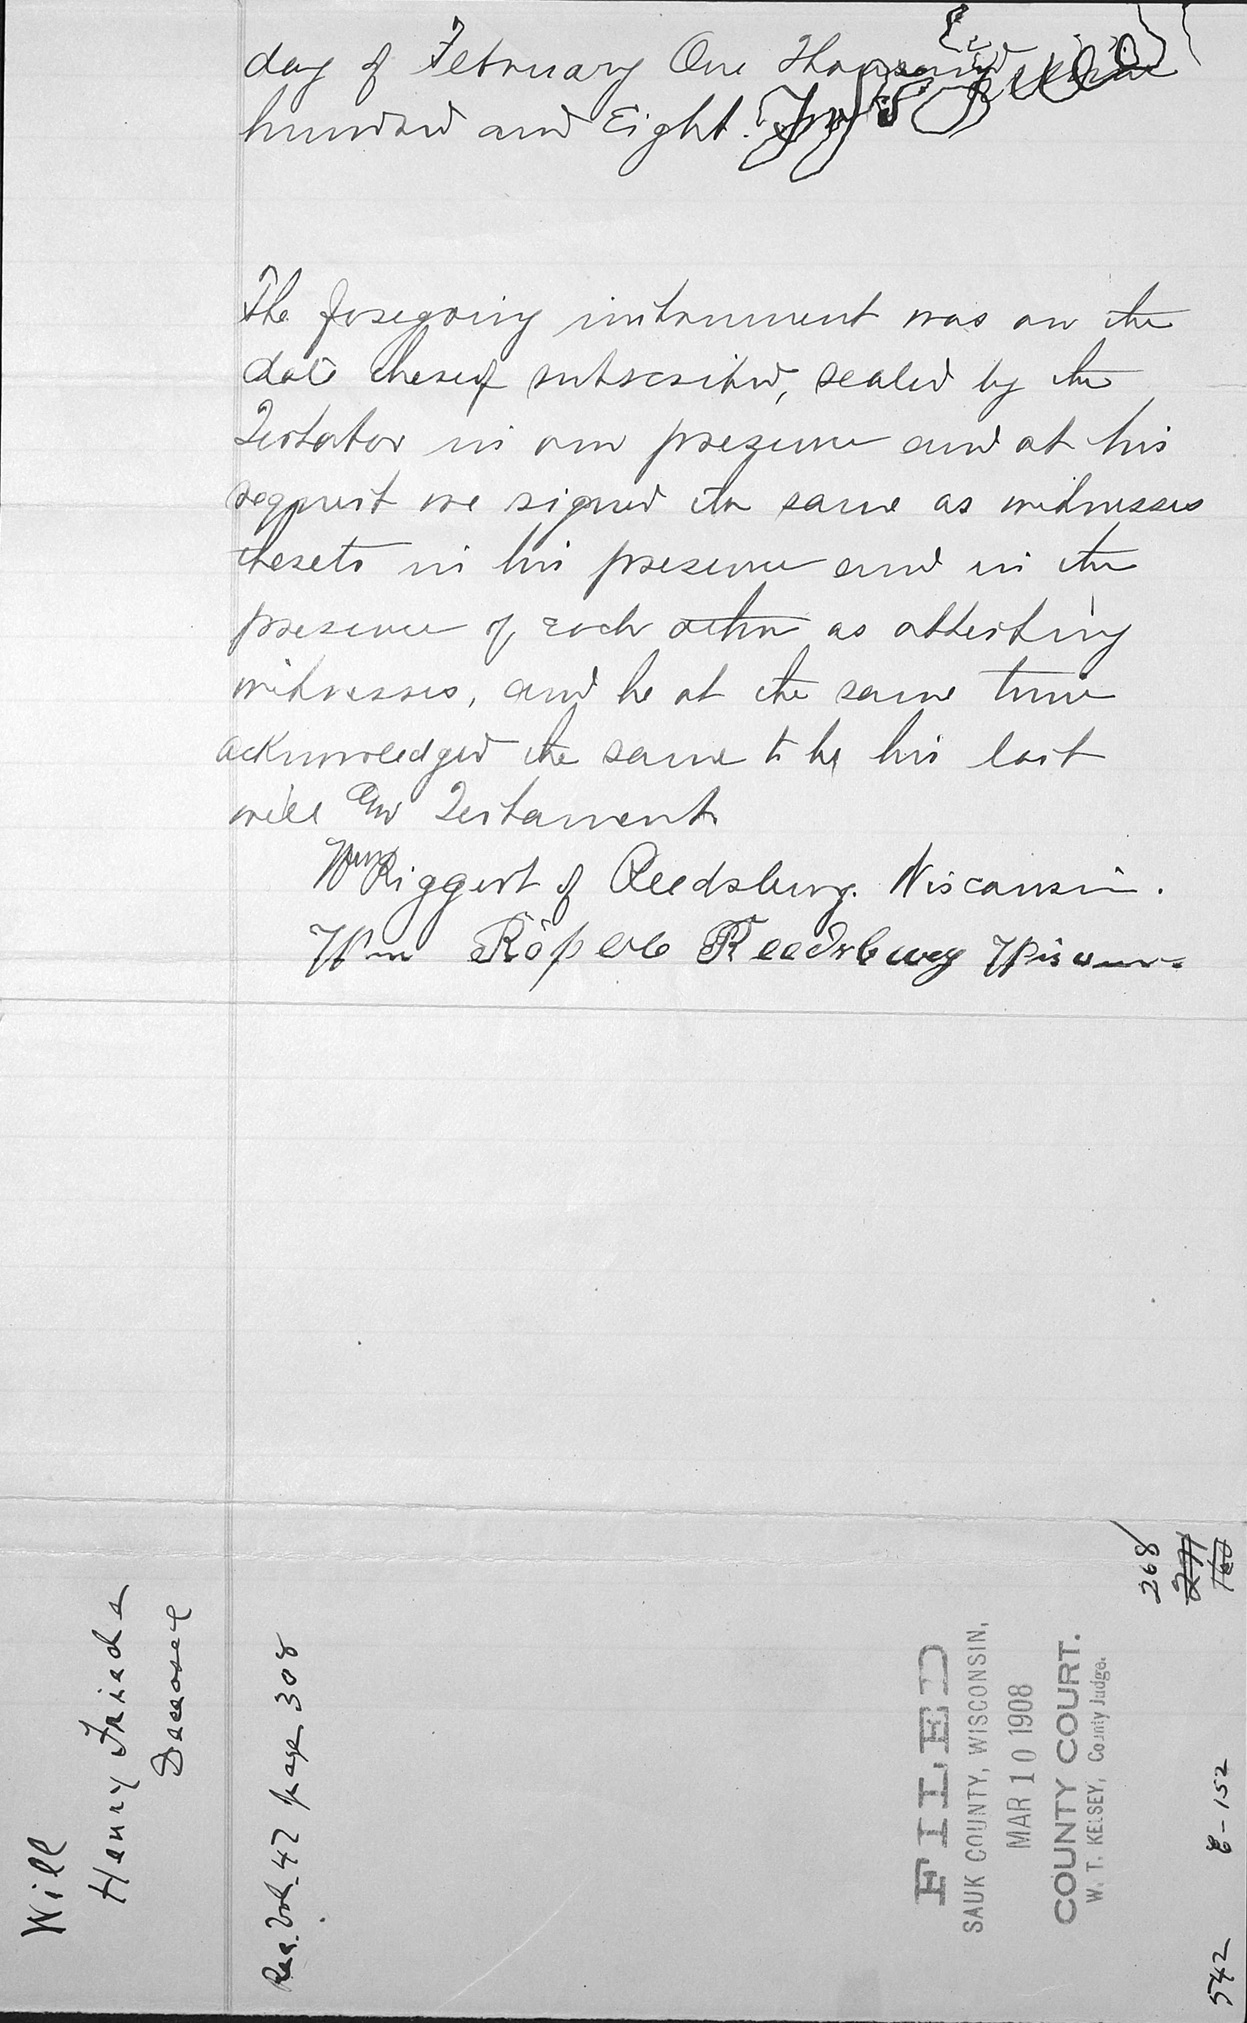 day of February One Thousand Nine
hundred and Eight.
The foregoing instrument was on the
date thereof subscribed, sealed by the
Testator in our presence and at his
request we signed the same as witnesses
thereto in his presence and in the
presence of each other as attesting
witnesses, and he at the same time
acknowledged the same to be his last
will and Testament.
Wm Riggert of Reedsburg. Wisconsin.
Wm Röper Reedsburg Wiscon.
Will
Henry Frieds
Deceased
Rec. Vol. 47 page 308
FILED
SAUK COUNTY, WISCONSIN,
MAR 10 1908
COUNTY COURT.
W. T. KELSEY, County Judge.
268
542 E-152